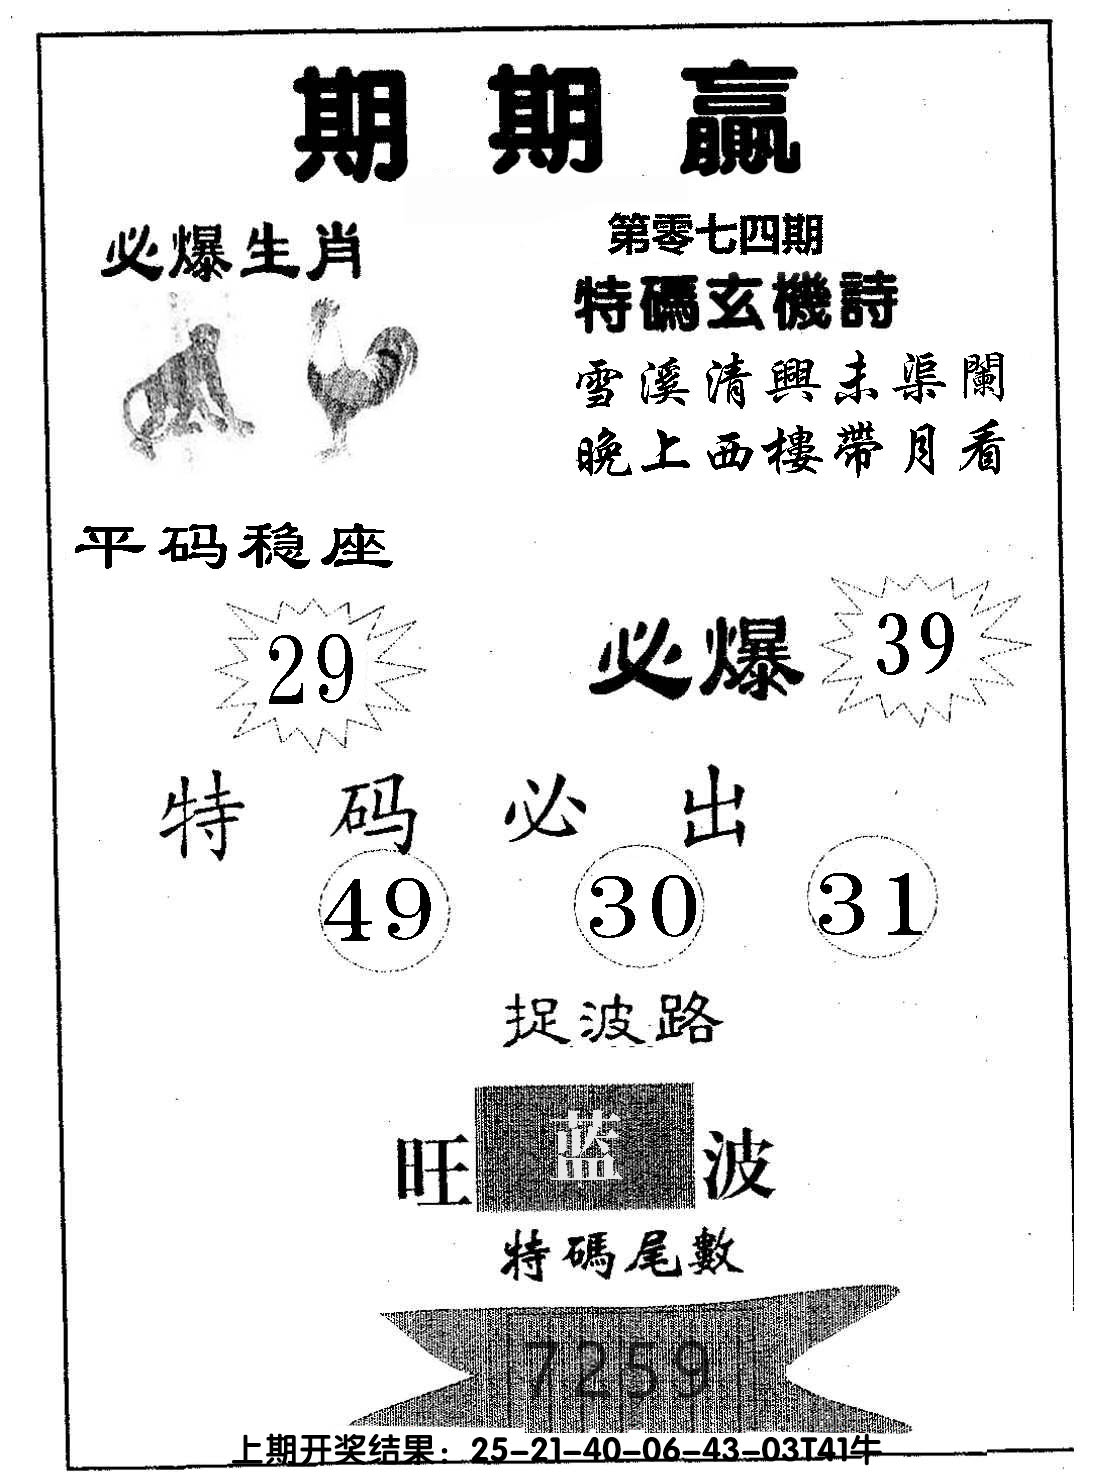 期期赢
必爆生肖
第零七四期
特碼玄機詩
雪溪清興未渠闌
晚上西樓帶月看
平码稳座
29
必爆 39
特码必出
49 30 31
捉波路
旺蓝波
特碼尾數
7259
上期开奖结果：25-21-40-06-43-03T41牛